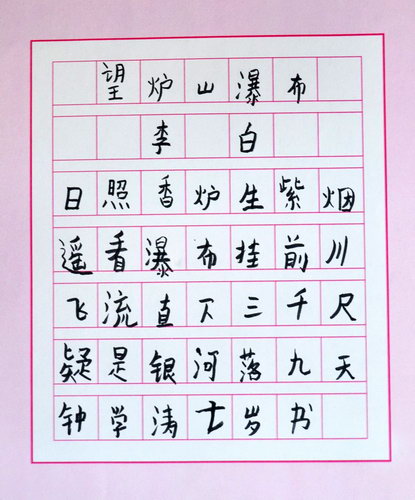 望炉山瀑布
李白
日照香炉生紫烟
遥看瀑布挂前川
飞流直下三千尺
疑是银河落九天
钟学涛七岁书